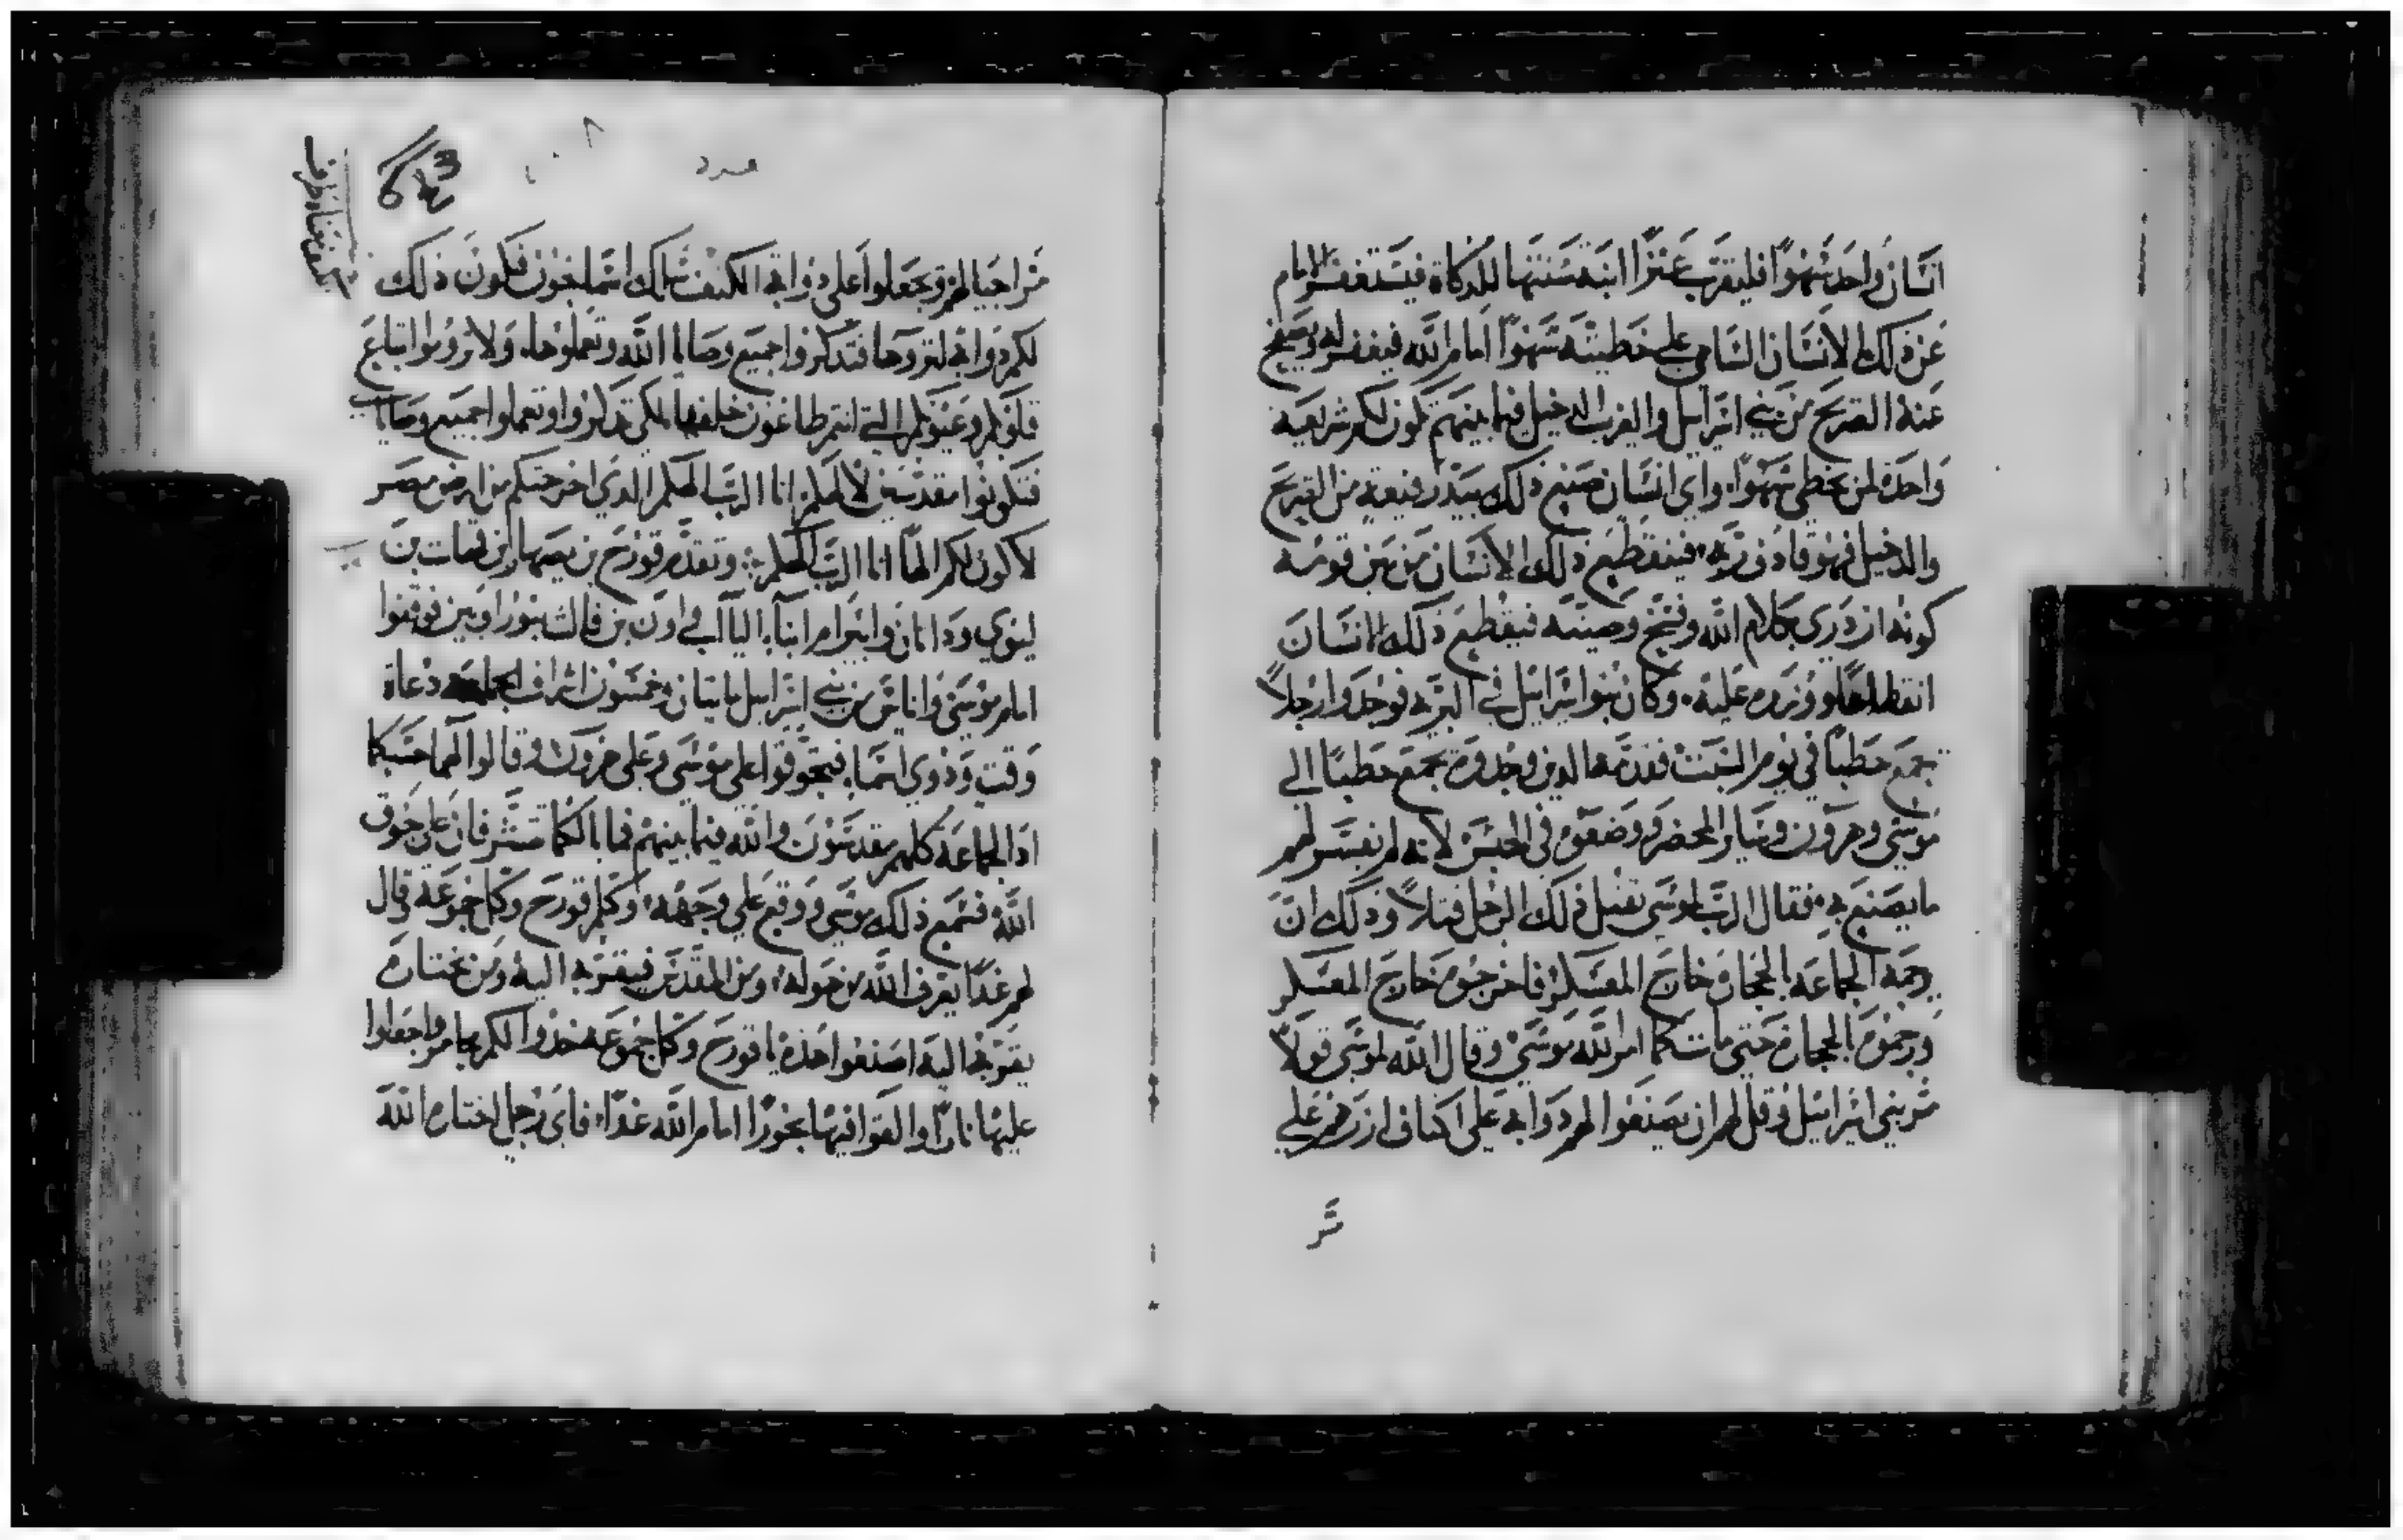 انسان واحد سهوًا فليقرب عنزًا ابنة سنتها للذكاة فيستغفر الامام
عن ذلك الانسان الساهي علي خطيئته سهوًا امام الله فيغفر له ويصفح
عنه الصريح من بني اسراييل والغريب الدخيل فيما بينهم تكون لكم شريعية
واحدة لمن يخطي سهوًا، واي انسان صنع ذلك بيد رفيعة من الصريح
والدخيل فهو قادف ربه، فينقطع ذلك الانسان من بين قومه
كونه ازدري بكلام الله وفسخ وصيته فيقطع ذلك الانسان
انقطاعًا ووزره عليه، وكان بنوا اسراييل في البريه فوجدوا رجلاً
يجمع حطبًا في يوم السبت فقدمها الدين وجدوه يجمع حطبًا الي
موسي وهرون وساير المحضر ووضعوه في الحبس لانه لم يفسر لهم
ما يصنع به، فقال الرب لموسي يقتل ذلك الرجل قتلاً وذلك ان
يرجمه الجماعه بالحجارة خارج المعسكر فاخرجوه خارج المعسكر
ورجموه بالحجارة حتي مات كما امر الله موسي وقال الله لموسي قولاً
مر بني اسراييل وقل لهم ان يصنعوا لهم دوابه علي اكتاف ازرهم علي
مر
عدد
مر اجيالهم ويجعلوا علي دوابه الكنف سلك اسمانجون فتكون ذلك
لكم دوابه لتروها فتدكروا جميع وصايا الله وتعملوها، ولا تروموا اتباع
قلوبكم وعيونكم التي انتم طاغون خلفها لكي تدكروا وتعملوا جميع وصاياي
فتكونوا مقدسين لالهكم انا الرب الهكم الدي اخرجتكم من ارض مصر
لاكون لكم الهًا انا الرب الهكم، وتقدم قورح بن يصهار بن قهات بن
ليوي وداتان وابيرام ابنا الياآب واون بن فالت بنو راوبين فوقفوا
امام موسي واناس من بني اسراييل مايتان وخمسون اشراف الجماعة دعاة
وقت ودوي اسما، فتجوقوا علي موسي وعلي هرون وقالوا لهما حسبكما
اد الجماعة كلهم مقدسون والله فيما بينهم فما بالكما تتشرفان علي جوق
الله فسمع ذلك موسي ووقع علي وجهه، وكلم قورح وكل جموعه وقال
لهم غدًا يعرف الله من هو له، ومن المقدس فيقربه اليه ومن يختاره
يقربه اليه اصنعوا هذه يا قورح وكل جموعه خدوا لكم مجامر واجعلوا
عليها نارًا والقوا فيها بخورًا امام الله غدًا، فاي رجل اختاره الله